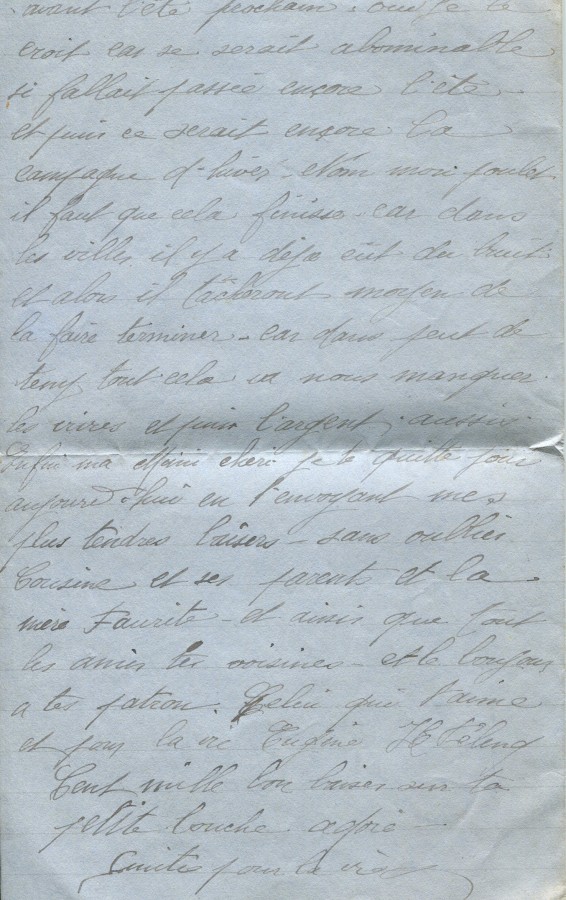 avant l'été prochain. oui je le
croit cas se serait abominable
si fallait passée encore l'été
et puis ce serait encore la
campagne d'hiver. Non mon poulet
il faut que cela finisse. car dans
les villes il y a déja eût du bruit
et alors il tâcheront moyen de
la faire terminer. car dans peut de
temp tout cela va nous manquer.
les vivres et puis l'argent aussi.
Enfin ma cheri je te quitte pour
aujourd'hui en t'envoyant mes
plus tendres baisers - sans oublier
Cousine et ses parents et la
mère Faurite - et ainsi que tout
les amis les voisines - et le bonjour
a tes patron. Celui qui t'aime
et pour la vie Eugène
Cent mille bon baiser sur ta
petite bouche adoré
Unite pour la vie